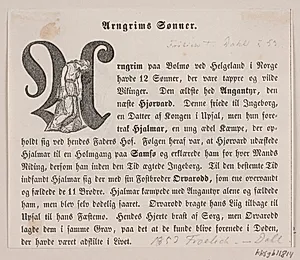 Arngrims Sønner.
Arngrim paa Bolmo ved Helgeland i Norge
havde 12 Sønner, der vare tappre og vilde
Vikinger. Den ældste hed Angantyr, den
næste Hjorvard. Denne friede til Ingeborg,
en Datter af Kongen i Upsal, men hun fore-
trak Hjalmar, en ung adel Kæmpe, der op-
holdt sig ved hendes Faders Hof. Følgen heraf var, at Hjorvard udæskede
Hjalmar til en Holmgang paa Samsø og erklærede ham for hver Mands
Niding, dersom han inden den Tid ægtede Ingeborg. Til den bestemte Tid
indfandt Hjalmar sig der med sin Fostbroder Orvarodd, som ene overvandt
og fældede de 11 Brødre. Hjalmar kæmpede med Angantyr alene og fældede
ham, men blev selv dødelig saaret. Orvarodd bragte hans Liig tilbage til
Upsal til hans Fæstemø. Hendes Hjerte brast af Sorg, men Orvarodd
lagde dem i samme Grav, paa det at de kunde blive forenede i Døden,
der havde været adskilte i Livet.
1853 Froelich - Dahl.